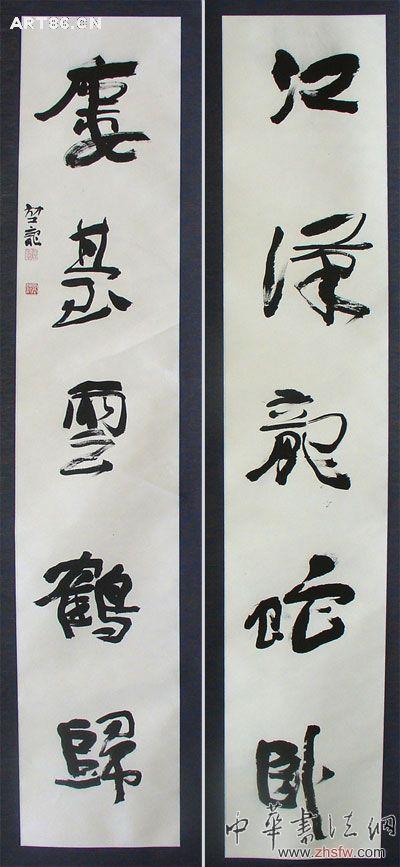 ART86.CN
江漢龍蛇卧
廔臺雲鶴歸
中華書法網
www.zhsfw.com